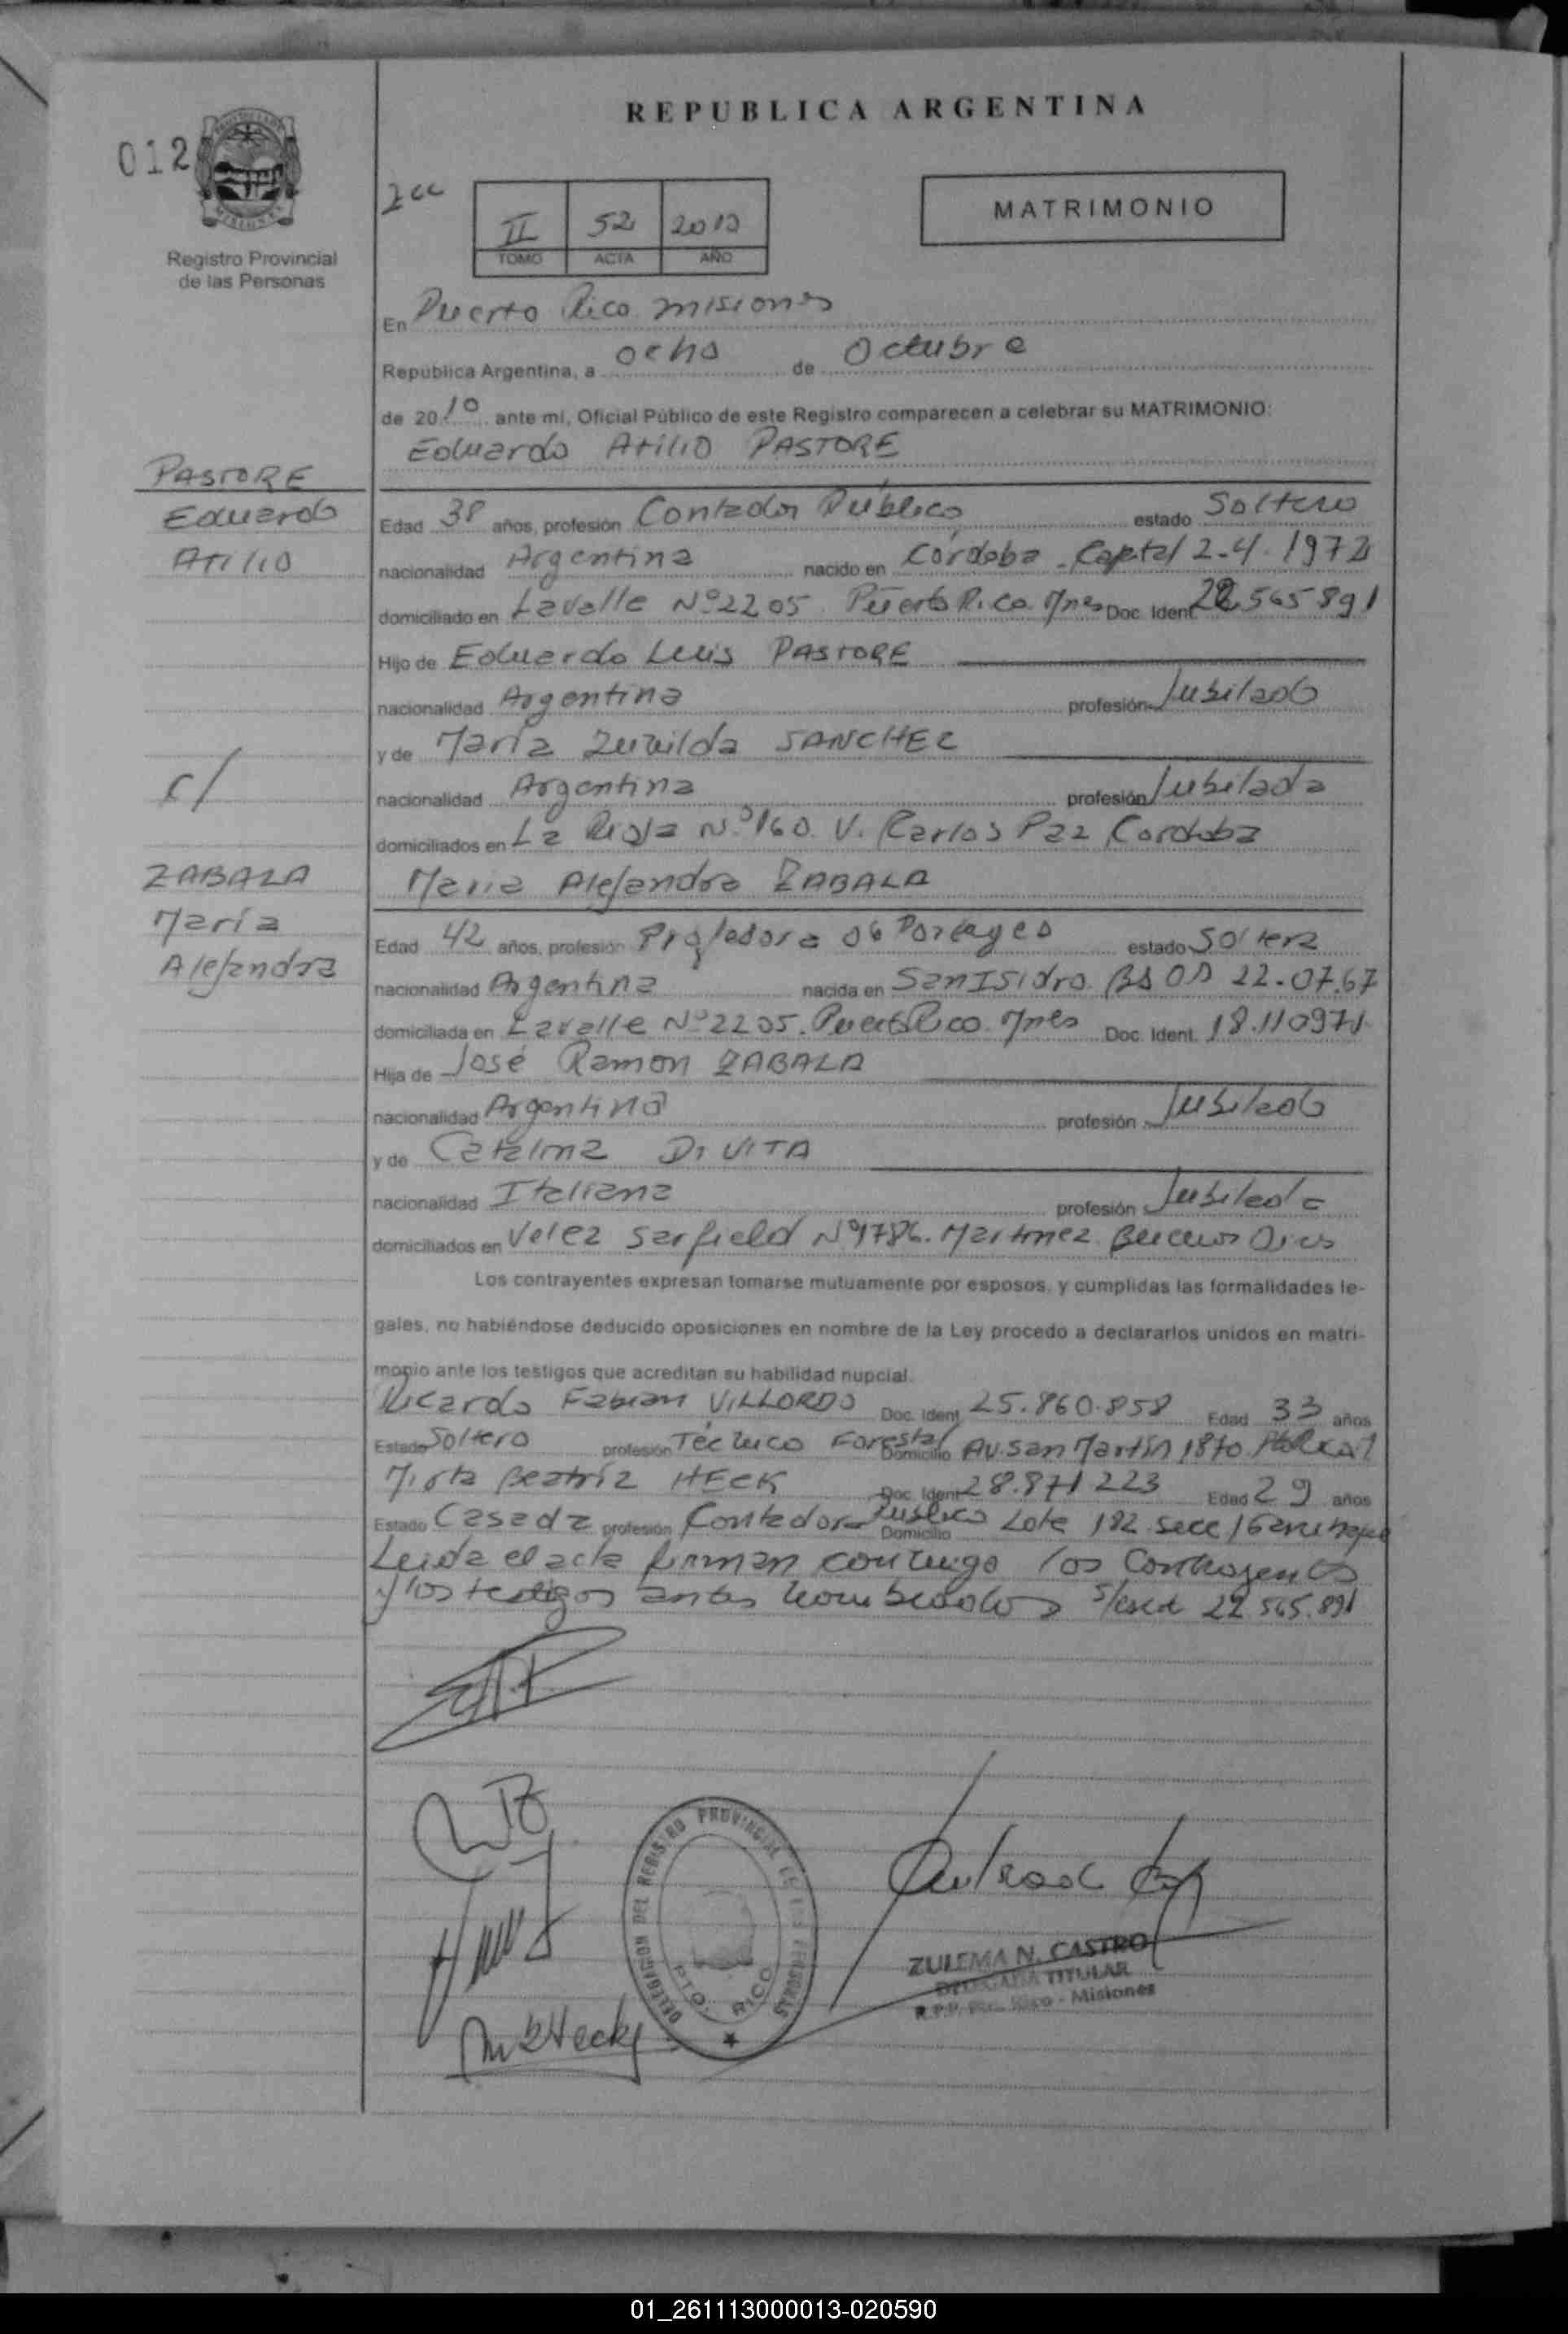 REPUBLICA ARGENTINA
012
Registro Provincial
de las Personas
2cc
II 52 2010
TOMO ACTA AÑO
MATRIMONIO
En Puerto Rico misiones
República Argentina, a ocho de Octubre
de 2010 ante mí, Oficial Público de este Registro comparecen a celebrar su MATRIMONIO:
Eduardo Atilio PASTORE
PASTORE
Eduardo
Atilio
Edad 38 años, profesión Contador Público estado Soltero
nacionalidad Argentina nacido en Córdoba - Capital 2-4-1972
domiciliado en Lavalle Nº 2205 Puerto Rico Mnes Doc. Ident. 22.565891
Hijo de Eduardo Luis PASTORE
nacionalidad Argentina profesión Jubilado
y de María Zunilda SANCHEZ
nacionalidad Argentina profesión Jubilada
domiciliados en La Rioja Nº 160. V. Carlos Paz Cordoba
c/
ZABALA
María
Alejandra
Maria Alejandra ZABALA
Edad 42 años, profesión Profesora de estado Soltera
nacionalidad Argentina nacida en San Isidro Bs As 22-07.67
domiciliada en Lavalle Nº 2205. Puerto Rico Mnes Doc. Ident. 18.110971
Hija de José Ramon ZABALA
nacionalidad Argentina profesión Jubilado
y de Catalina DI VITA
nacionalidad Italiana profesión Jubilada
domiciliados en Velez Sarfield Nº 1786. Martinez Buenos Aires
Los contrayentes expresan tomarse mutuamente por esposos, y cumplidas las formalidades le-
gales, no habiéndose deducido oposiciones en nombre de la Ley procedo a declararlos unidos en matri-
monio ante los testigos que acreditan su habilidad nupcial.
Ricardo Fabian VILLORDO Doc. Ident. 25.860.858 Edad 33 años
Estado Soltero profesión Técnico Forestal Domicilio Av. San Martín 1870
Mirta Beatríz HECK Doc. Ident. 28.871223 Edad 29 años
Estado Casada profesión Contadora Publico Domicilio Lote 182 secc
Leida el acta firman conmigo los Contrayentes
y los testigos antes nombrados 22.565.891
DELEGACION DEL REGISTRO PROVINCIAL DE LAS PERSONAS
PTO. RICO
ZULEMA N. CASTRO
DELEGADA TITULAR
R.P.P. Pto. Rico - Misiones
01_261113000013-020590